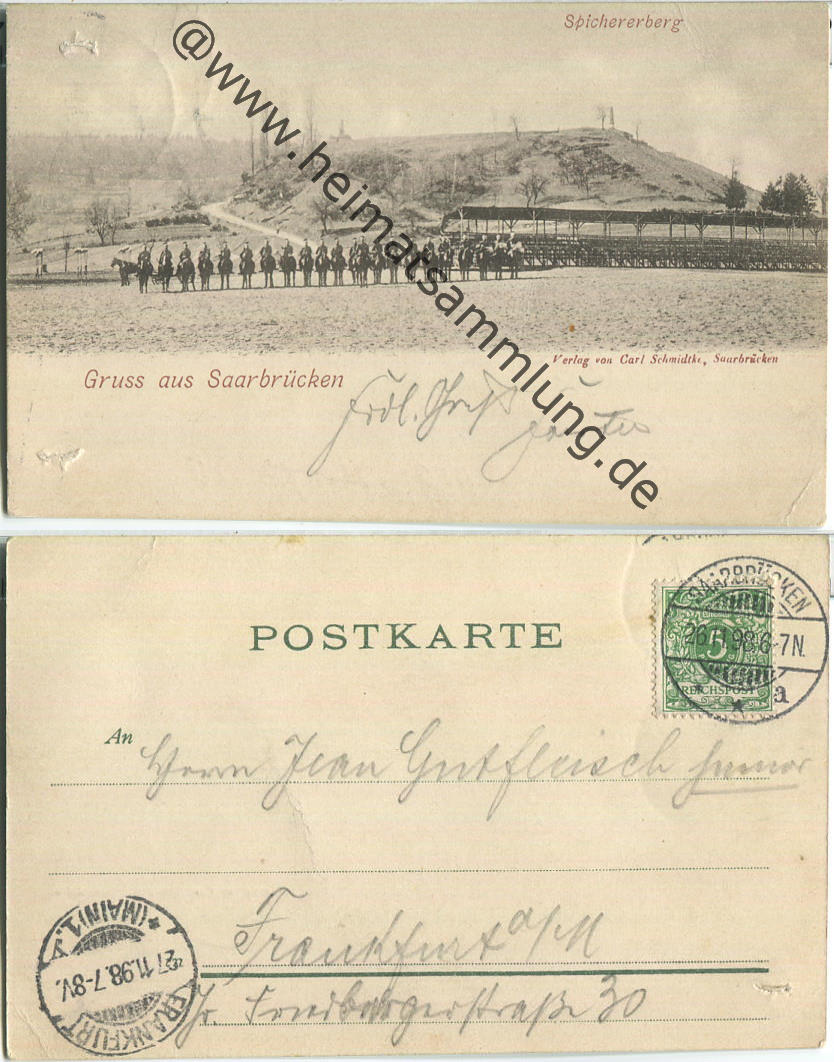 Spichererberg
@www.heimatsammlung.de
Verlag von Carl Schmidtke, Saarbrücken
Gruss aus Saarbrücken
Frdl. Gruß
POSTKARTE
SAARBRÜCKEN
26.11.98.6-7N.
a
5
REICHSPOST
An
Herrn Jean Gutfleisch junior
Frankfurt a/M
Gr. Friedbergerstraße 30
FRANKFURT
27.11.98.7-8V.
*(MAIN)1.